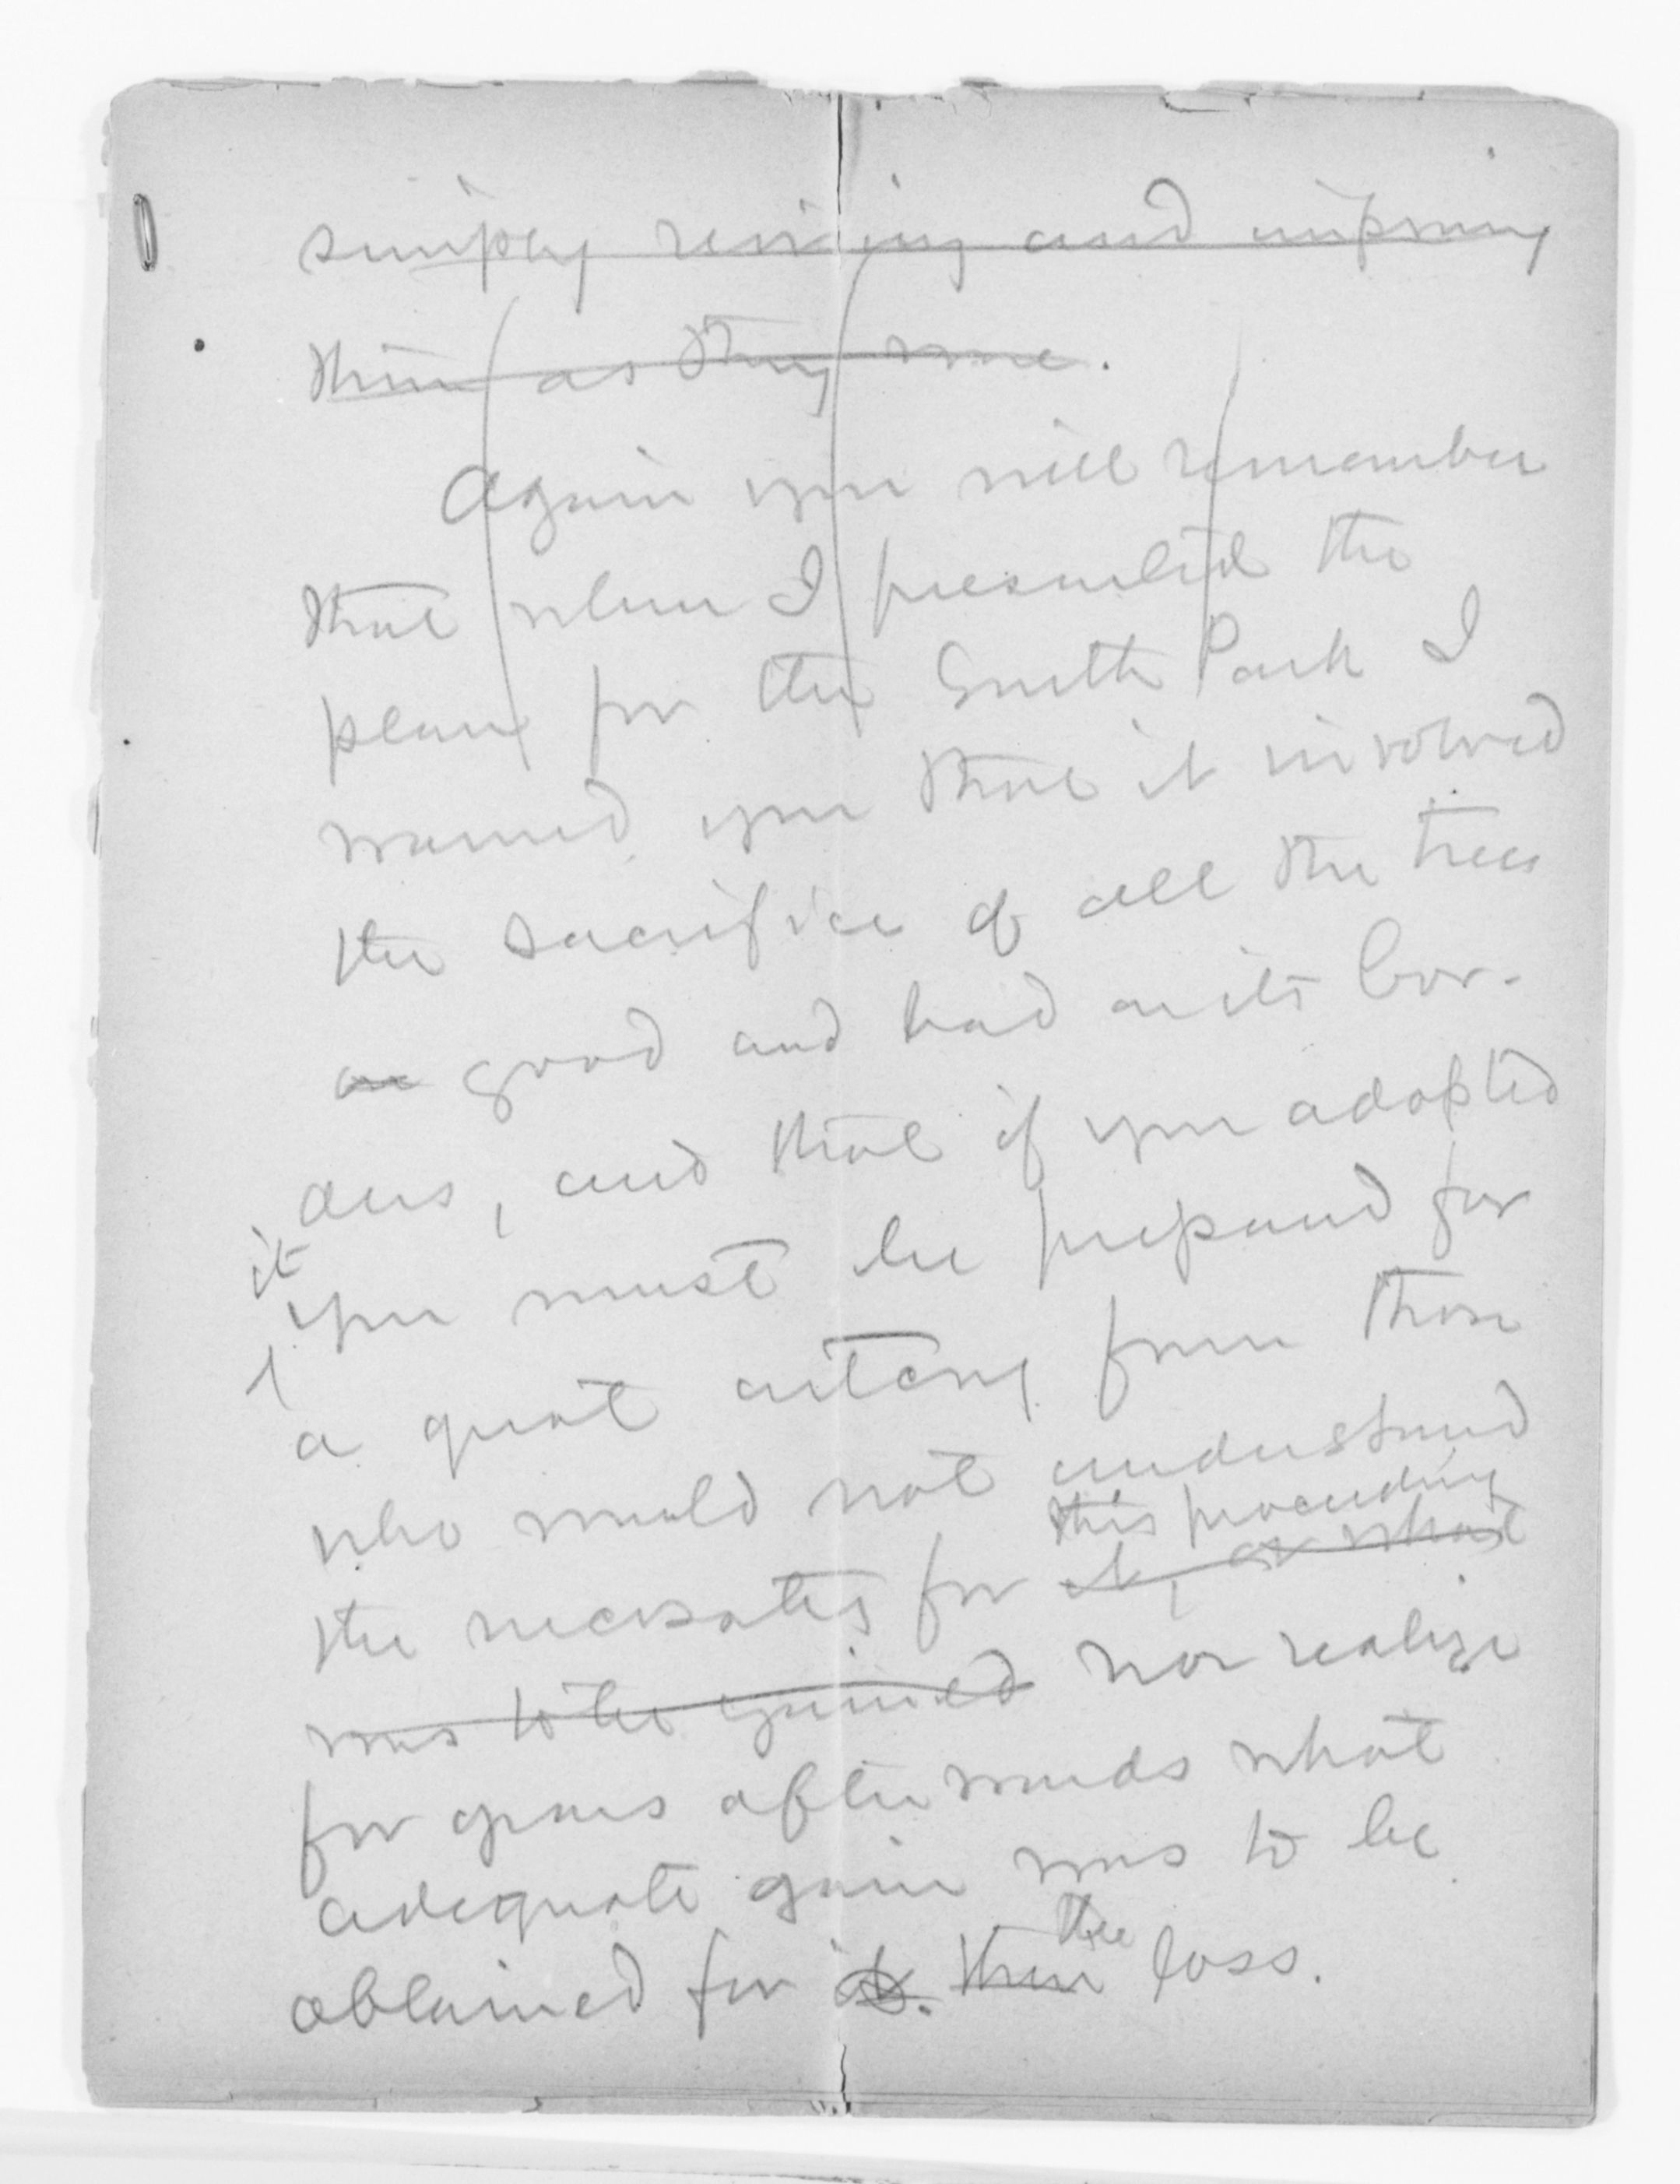 simply revising and improving
them as they were.
Again you will remember
that when I presented the
plan for the South Park I
warned you that it involved
the sacrifice of all the trees
good and bad on its bor-
ders, and that if you adopted
it
you must be prepared for
a great outcry from those
who would not understand
this proceeding
the necessity for it, or what
was to be gained nor realize
for years afterwards what
adequate gain was to be
the
obtained for it. their loss.